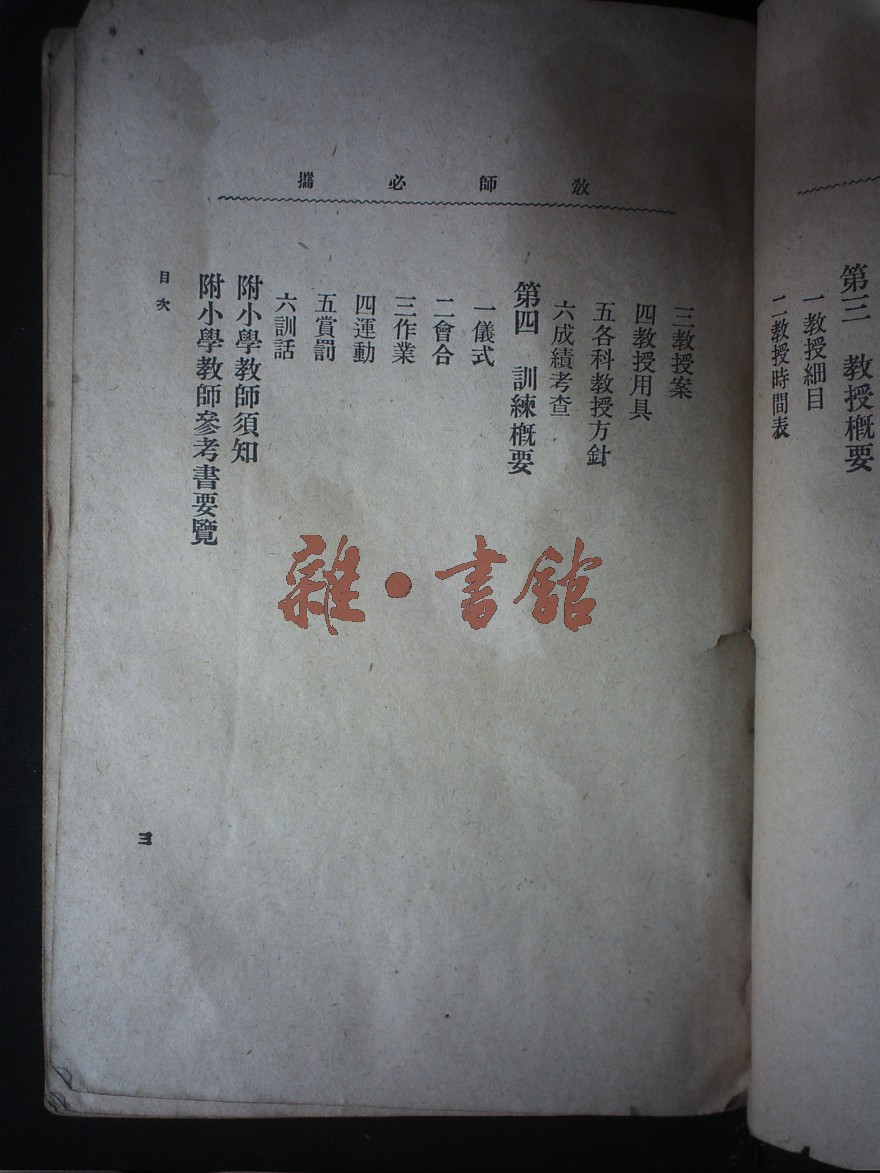 第三　教授概要
一教授細目
二教授時間表
教師必攜
三教授案
四教授用具
五各科教授方針
六成績考查
第四　訓練概要
一儀式
二會合
三作業
四運動
五賞罰
六訓話
附小學教師須知
附小學教師參考書要覽
目次
三
雜·書館